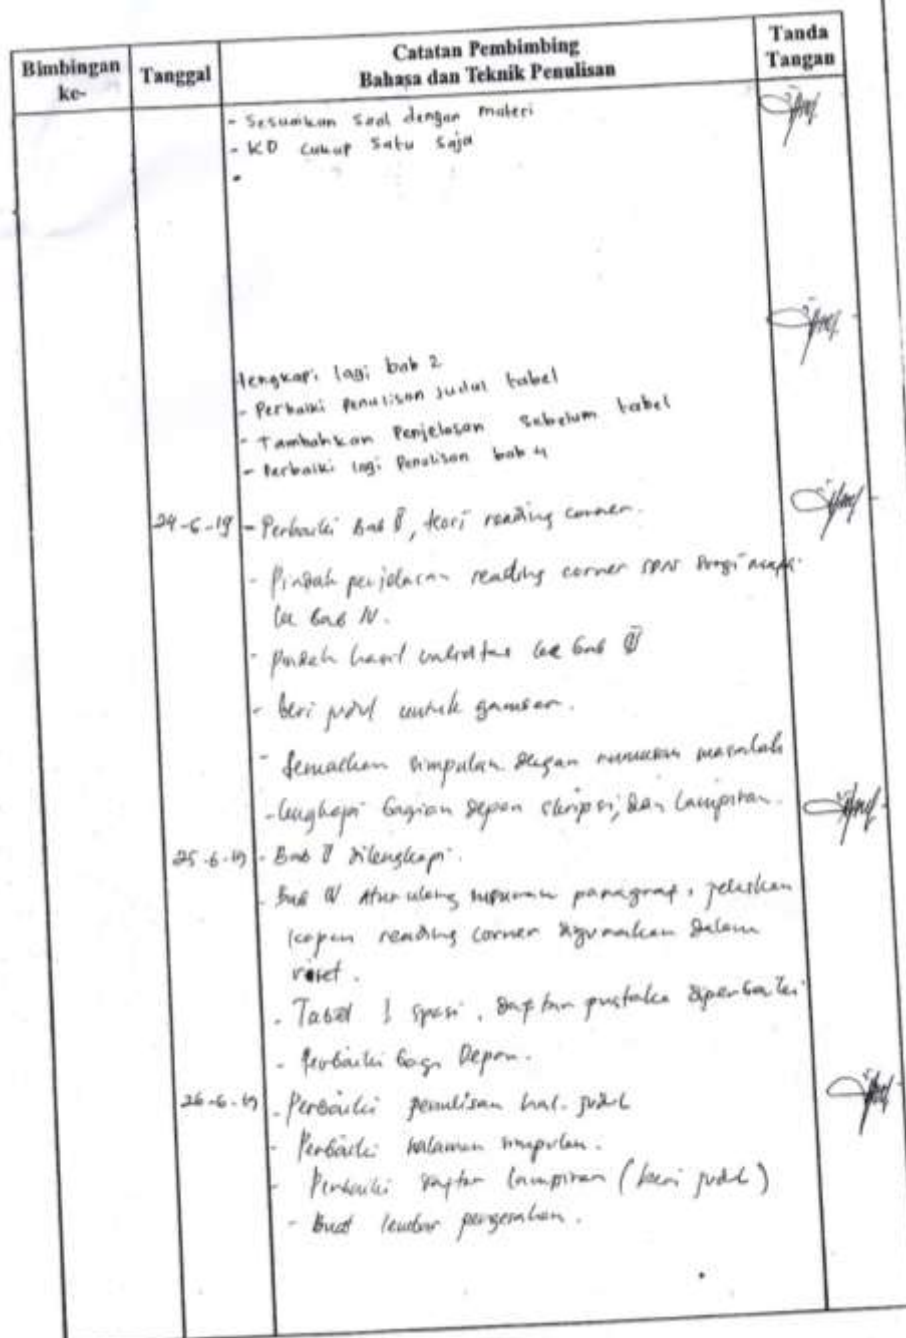 Bimbingan ke-
Tanggal
Catatan Pembimbing
Bahasa dan Teknik Penulisan
Tanda Tangan
- Sesuaikan soal dengan materi
- KD cukup satu saja
lengkapi lagi bab 2
- Perbaiki Penulisan judul tabel
- Tambahkan Penjelasan sebelum tabel
- Perbaiki lagi Penulisan bab 4
24-6-19 - Perbaiki Bab II, teori reading corner.
- Pindah penjelasan reading corner
ke Bab IV.
- pindah hasil validitas ke bab
- beri judul untuk gambar.
- Sesuaikan simpulan dengan rumusan masalah
- lengkapi bagian depan skripsi, dan lampiran.
25-6-19 - Bab II dilengkapi.
- Bab IV Atur ulang susunan paragraf, jelaskan
kapan reading corner digunakan dalam
riset.
- Tabel 1 spasi, daftar pustaka diperbaiki
- Perbaiki bagi Depan.
26-6-19 - Perbaiki penulisan hal. judul
- Perbaiki halaman simpulan.
- Perbaiki daftar lampiran (beri judul)
- Buat lembar pengesahan.